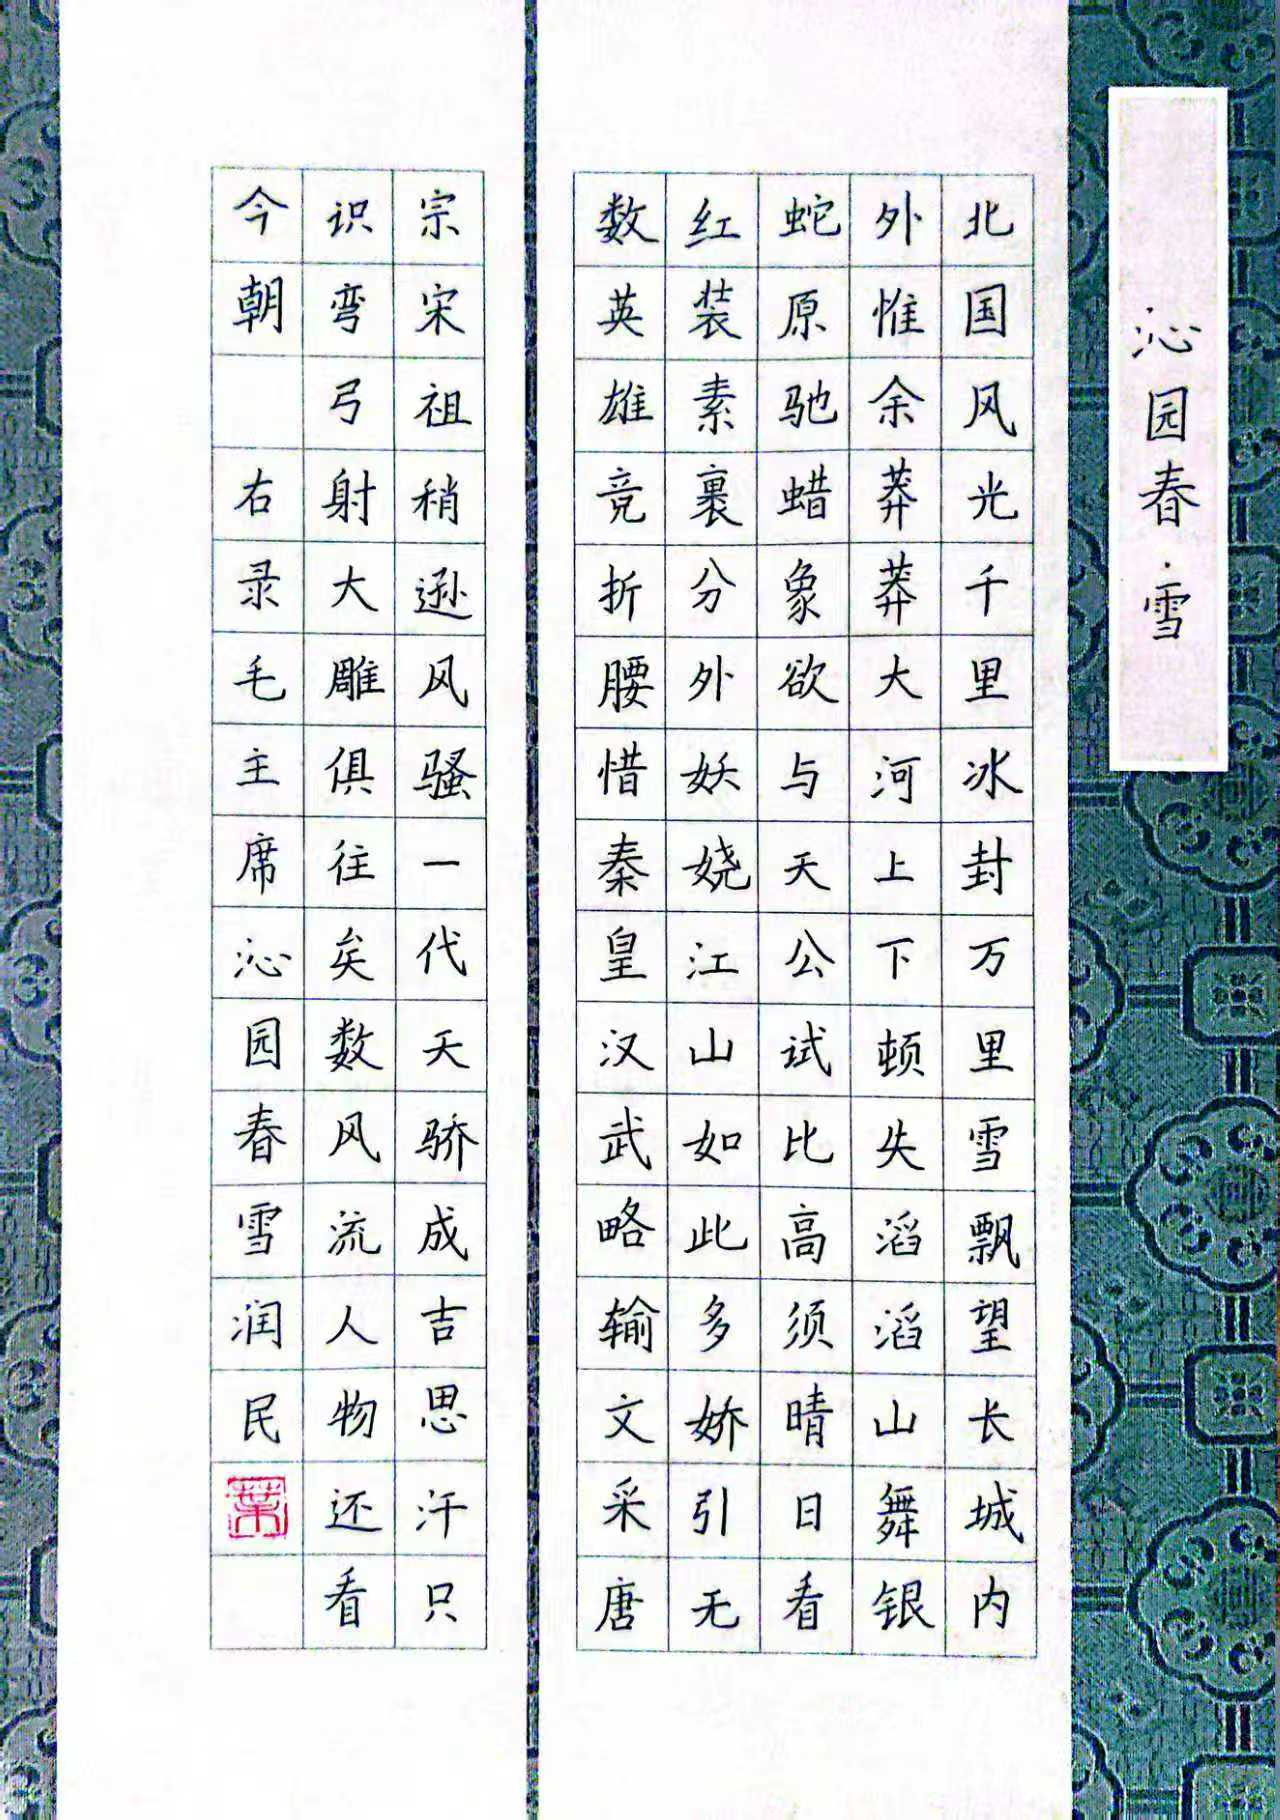 沁园春·雪
北国风光千里冰封万里雪飘望长城内
外惟余莽莽大河上下顿失滔滔山舞银
蛇原驰蜡象欲与天公试比高须晴日看
红装素裹分外妖娆江山如此多娇引无
数英雄竞折腰惜秦皇汉武略输文采唐
宗宋祖稍逊风骚一代天骄成吉思汗只
识弯弓射大雕俱往矣数风流人物还看
今朝 右录毛主席沁园春雪润民
葉